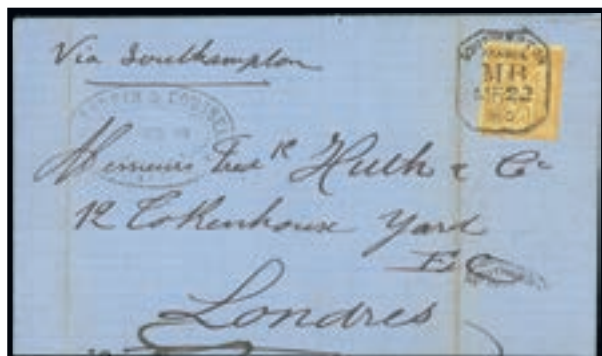 Via Southampton
MB
22
Messieurs Fred k Huth & Co
12 Tokenhouse Yard
EC
Londres